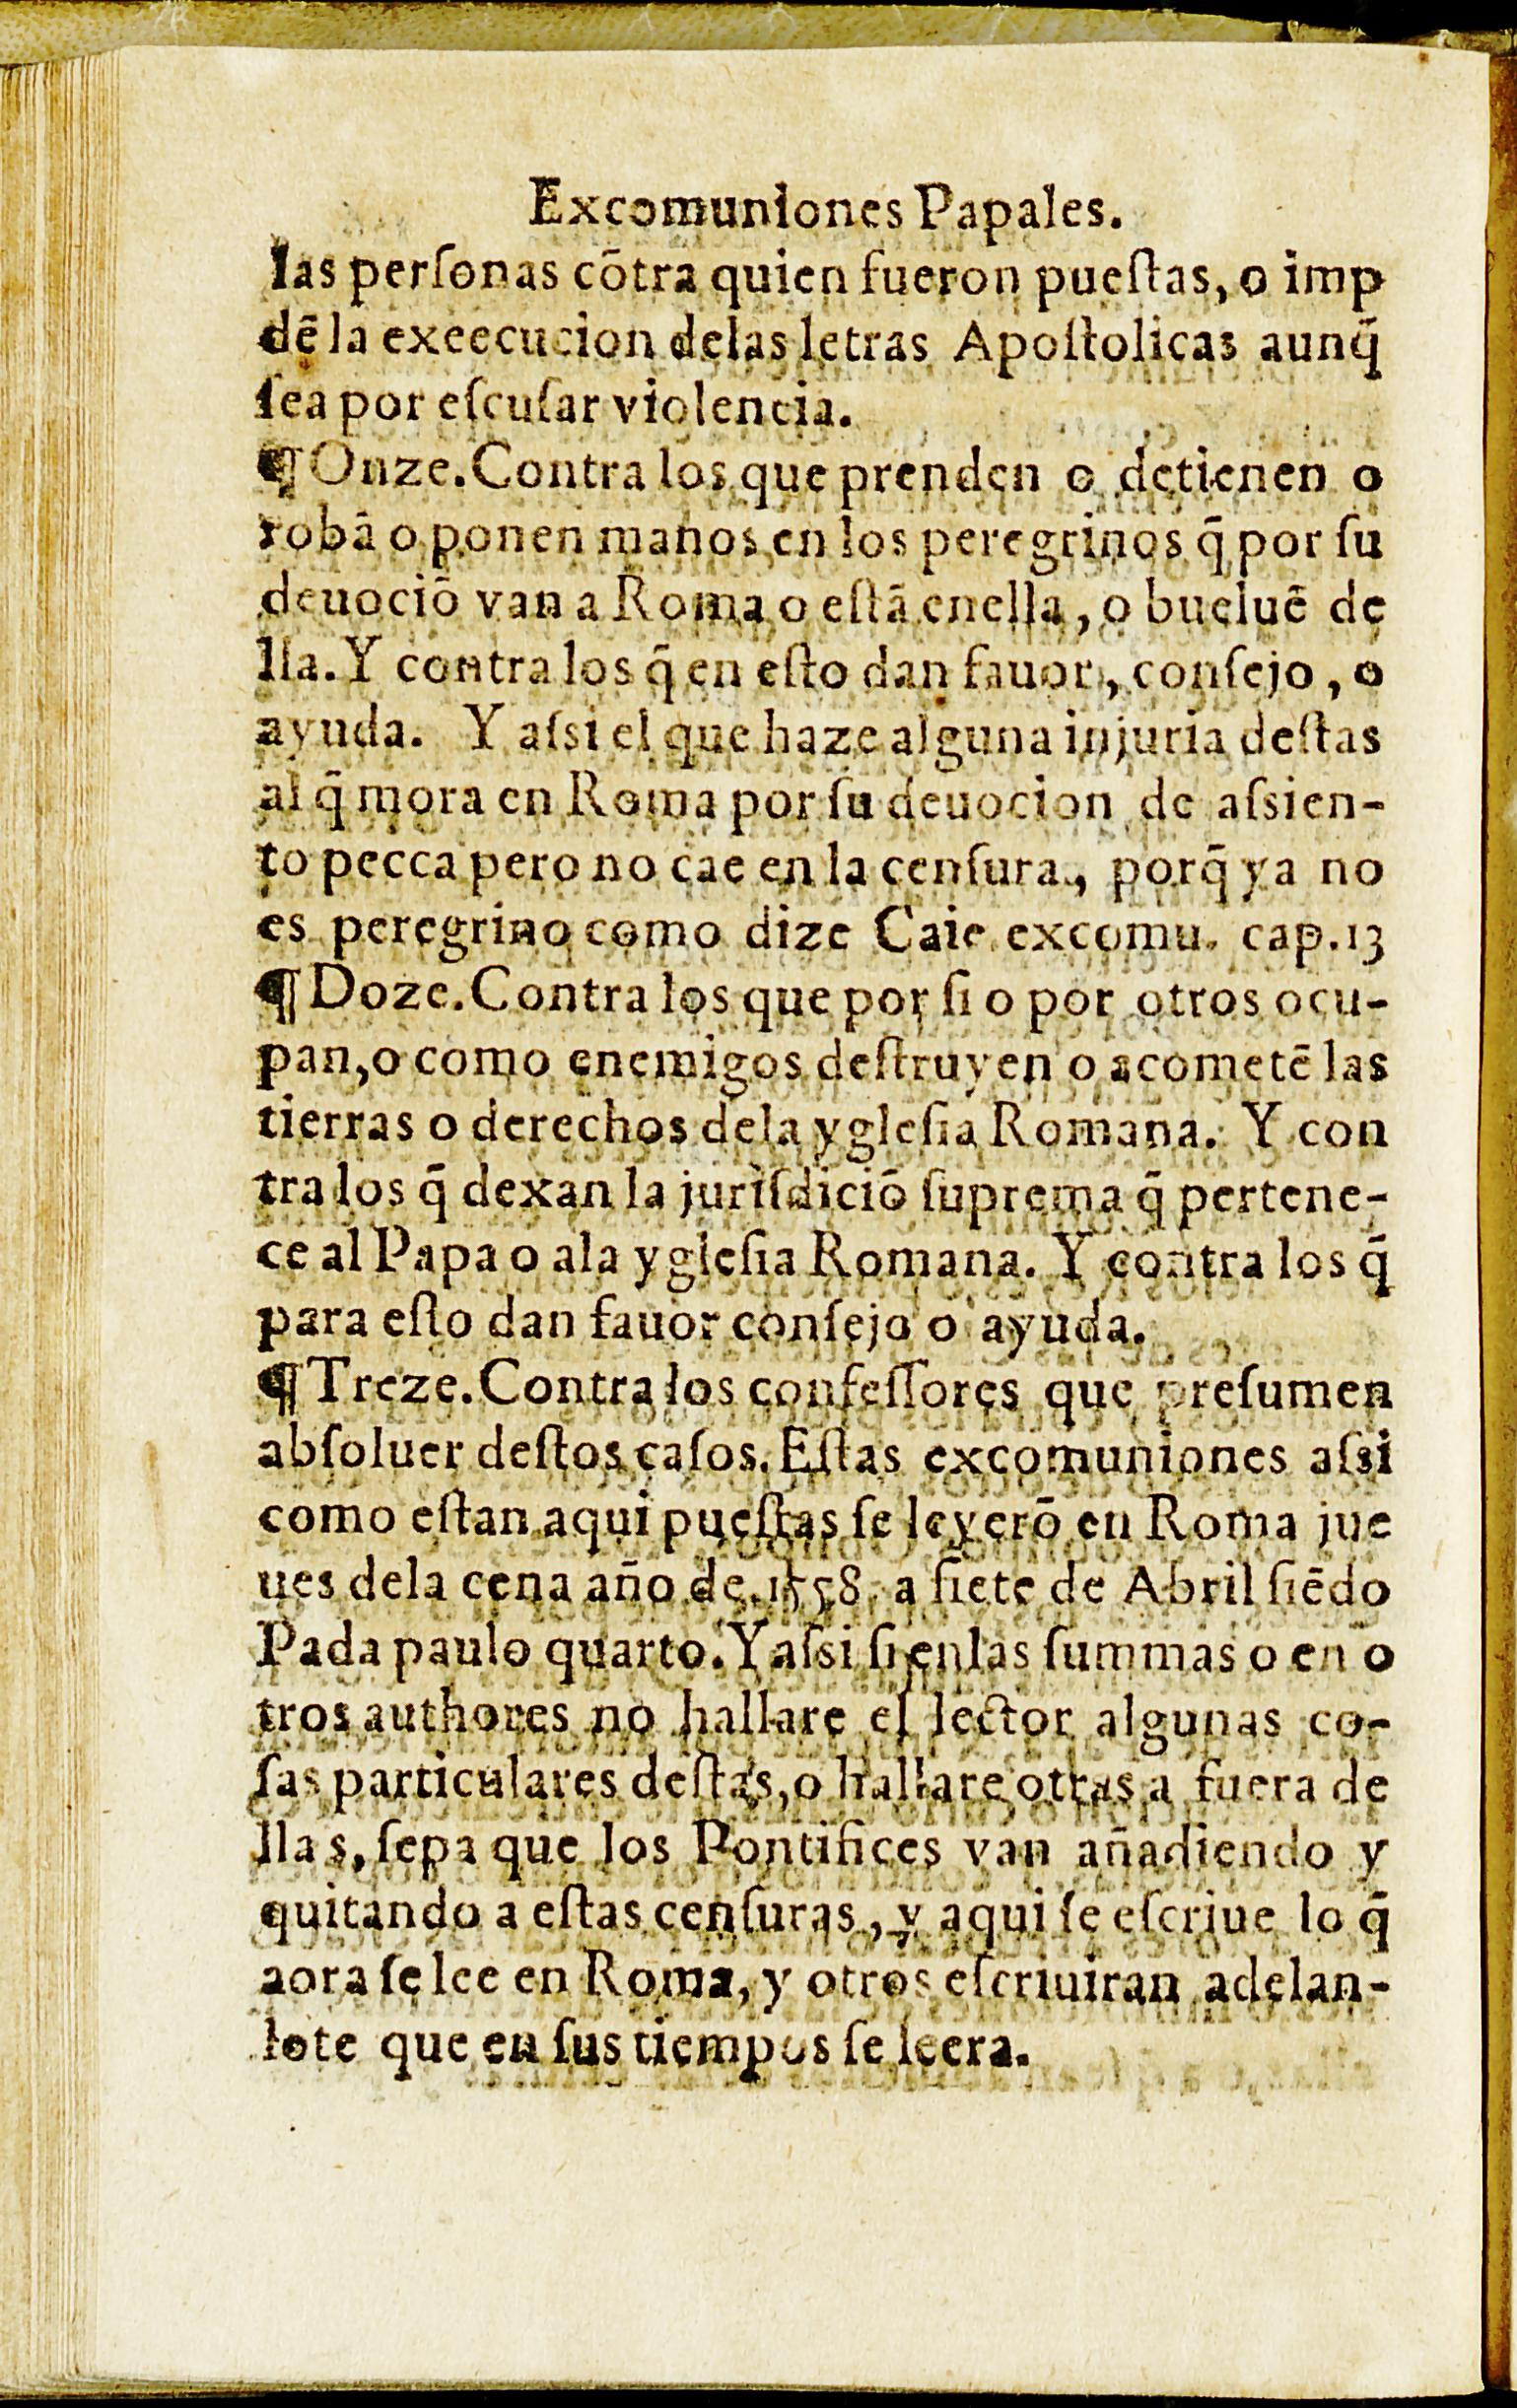 Excomuniones Papales.
las perſonas cõtra quien fueron pueſtas, o imp
dẽ la exeecucion delas letras Apoſtolicas aunq̃
ſea por eſcuſar violencia.
¶ Onze. Contra los que prenden o detienen o
robã o ponen manos en los peregrinos q̃ por ſu
deuociõ van a Roma o eſtã enella, o bueluẽ de
lla. Y contra los q̃ en eſto dan fauor, conſejo, o
ayuda. Y aſsi el que haze alguna injuria deſtas
al q̃ mora en Roma por ſu deuocion de aſsien-
to pecca pero no cae en la cenſura, porq̃ ya no
es peregrino como dize Caie excomu. cap. 13
¶ Doze. Contra los que por ſi o por otros ocu-
pan, o como enemigos deſtruyen o acometẽ las
tierras o derechos dela ygleſia Romana. Y con
tra los q̃ dexan la juriſdiciõ ſuprema q̃ pertene-
ce al Papa o ala ygleſia Romana. Y contra los q̃
para eſto dan fauor conſejo o ayuda.
¶ Treze. Contra los confeſſores que preſumen
abſoluer deſtos caſos. Eſtas excomuniones aſsi
como eſtan aqui pueſtas ſe leyerõ en Roma jue
ues dela cena año de. 1558. a ſiete de Abril ſiẽdo
Pada paulo quarto. Y aſsi ſi enlas ſummas o en o
tros authores no hallare el lector algunas co-
ſas particulares deſtas, o hallare otras a fuera de
llas, ſepa que los Pontifices van añadiendo y
quitando a eſtas cenſuras, y aqui ſe eſcriue lo q̃
aora ſe lee en Roma, y otros eſcriuiran adelan-
lote que en ſus tiempos ſe leera.